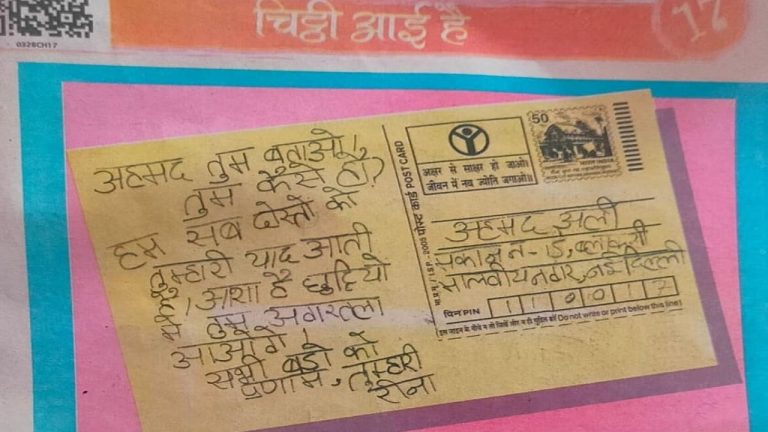 0328CH17
चिट्ठी आई है
17
अहमद तुम बताओ,
तुम कैसे हो?
हम सब दोस्तों को
तुम्हारी याद आती
है, आशा है छुट्टियों
में तुम अगरतला
आओगे।
सभी बड़ों को
प्रणाम, तुम्हारी
रीना
पोस्ट कार्ड POST CARD
अक्षर से साक्षर हो जाओ।
जीवन में नव ज्योति जगाओ॥
50
अहमद अली
मकान न-15, ब्लाक सी
मालवीयनगर, नई दिल्ली
पिन PIN 110017
इस लाइन के नीचे न तो लिखें और न ही मुद्रित करें Do not write or print below this line